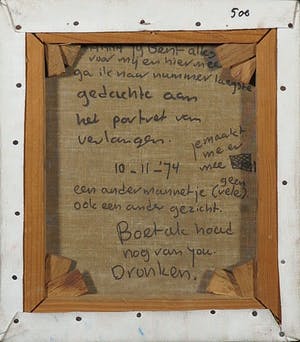 500
jij bent alles
voor mij en hiermee
ga ik naar nummer laagste
gedachte aan
het portret van
verlangen.
jemaakt
me er
mee
10-11-'74
geen
een ander mannetje (vele)
ook een ander gezicht.
Boetak houd
nog van you.
Dronken.